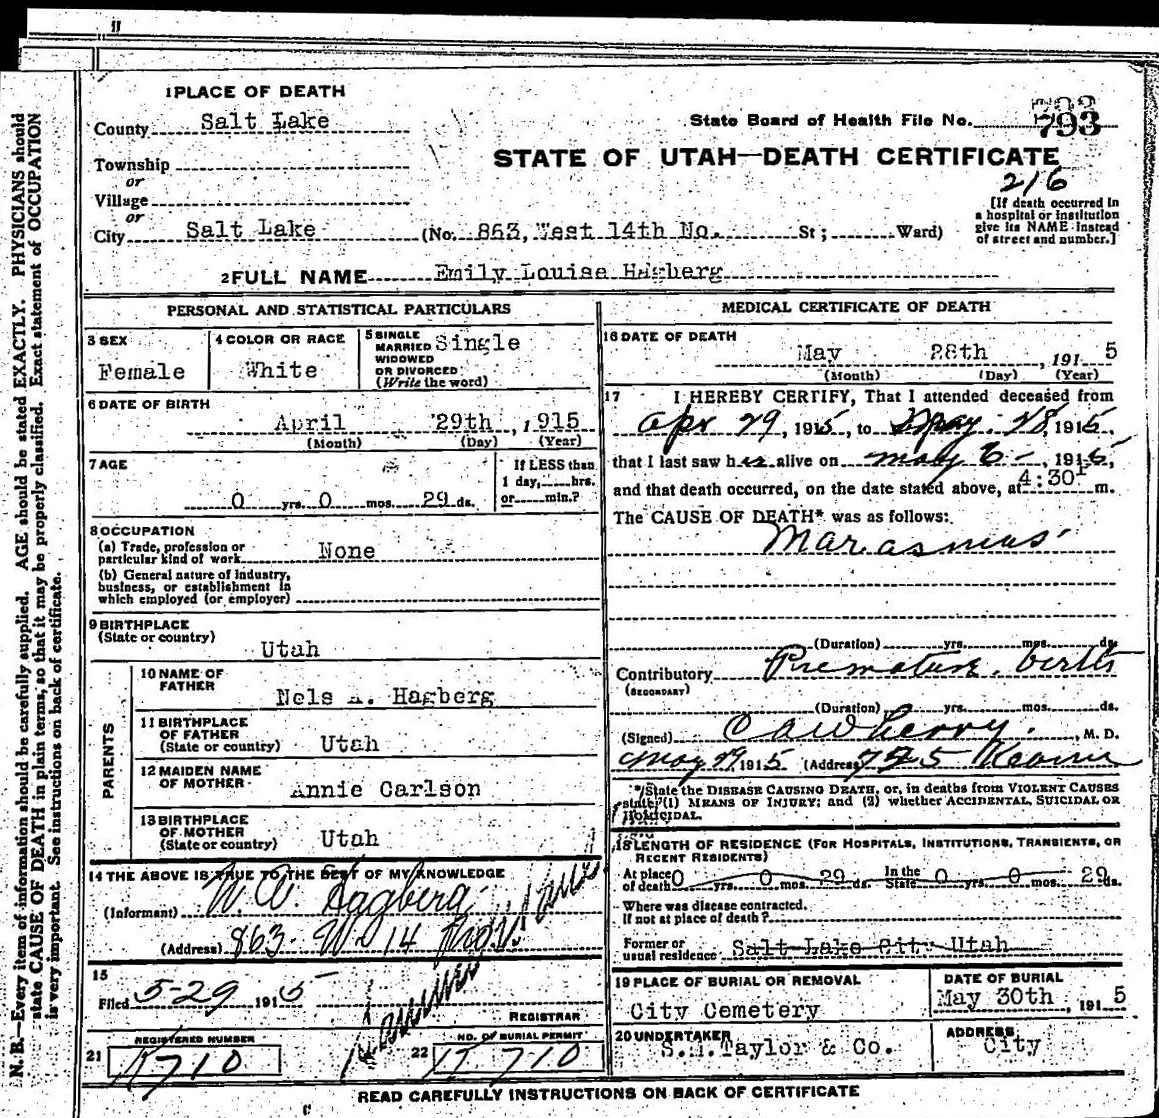 1 PLACE OF DEATH
County Salt Lake
Township
or
Village
or
City Salt Lake (No. 863, West 14th No. St; Ward)
State Board of Health File No. 793
STATE OF UTAH—DEATH CERTIFICATE
216
[If death occurred in
a hospital or institution
give its NAME instead
of street and number.]
2 FULL NAME Emily Louise Hagberg
PERSONAL AND STATISTICAL PARTICULARS
3 SEX
Female
4 COLOR OR RACE
White
5 SINGLE
MARRIED
WIDOWED
OR DIVORCED
(Write the word)
Single
6 DATE OF BIRTH
April 29th, 1915
(Month) (Day) (Year)
7 AGE
0 yrs. 0 mos. 29 ds.
If LESS than
1 day, hrs.
or min.?
8 OCCUPATION
(a) Trade, profession or
particular kind of work None
(b) General nature of industry,
business, or establishment in
which employed (or employer)
9 BIRTHPLACE
(State or country)
Utah
PARENTS
10 NAME OF
FATHER
Nels A. Hagberg
11 BIRTHPLACE
OF FATHER
(State or country) Utah
12 MAIDEN NAME
OF MOTHER Annie Carlson
13 BIRTHPLACE
OF MOTHER
(State or country) Utah
14 THE ABOVE IS TRUE TO THE BEST OF MY KNOWLEDGE
(Informant) Hagberg
(Address) 863 W 14
15
Filed 5-29 1915
REGISTRAR
REGISTERED NUMBER
21 K710
NO. OF BURIAL PERMIT
22 K710
MEDICAL CERTIFICATE OF DEATH
16 DATE OF DEATH
May 28th, 1915
(Month) (Day) (Year)
17 I HEREBY CERTIFY, That I attended deceased from
Apr 29, 1915, to May 28, 1915,
that I last saw her alive on May 6, 1915,
and that death occurred, on the date stated above, at 4:30 m.
The CAUSE OF DEATH* was as follows:
Marasmus
(Duration) yrs. mos. ds.
Contributory Premature birth
(SECONDARY)
(Duration) yrs. mos. ds.
(Signed) , M. D.
May 29 1915 (Address) 725 Kearns
*State the DISEASE CAUSING DEATH, or, in deaths from VIOLENT CAUSES
state (1) MEANS OF INJURY; and (2) whether ACCIDENTAL, SUICIDAL OR
HOMICIDAL.
18 LENGTH OF RESIDENCE (FOR HOSPITALS, INSTITUTIONS, TRANSIENTS, OR
RECENT RESIDENTS)
At place
of death 0 yrs. 0 mos. 29 ds. In the
State 0 yrs. 0 mos. 29 ds.
Where was disease contracted.
If not at place of death?
Former or
usual residence Salt Lake City Utah
19 PLACE OF BURIAL OR REMOVAL
City Cemetery
DATE OF BURIAL
May 30th, 1915
20 UNDERTAKER
S.M. Taylor & Co.
ADDRESS
City
READ CAREFULLY INSTRUCTIONS ON BACK OF CERTIFICATE
N. B.—Every item of information should be carefully supplied. AGE should be stated EXACTLY. PHYSICIANS should
state CAUSE OF DEATH in plain terms, so that it may be properly classified. Exact statement of OCCUPATION
is very important. See instructions on back of certificate.